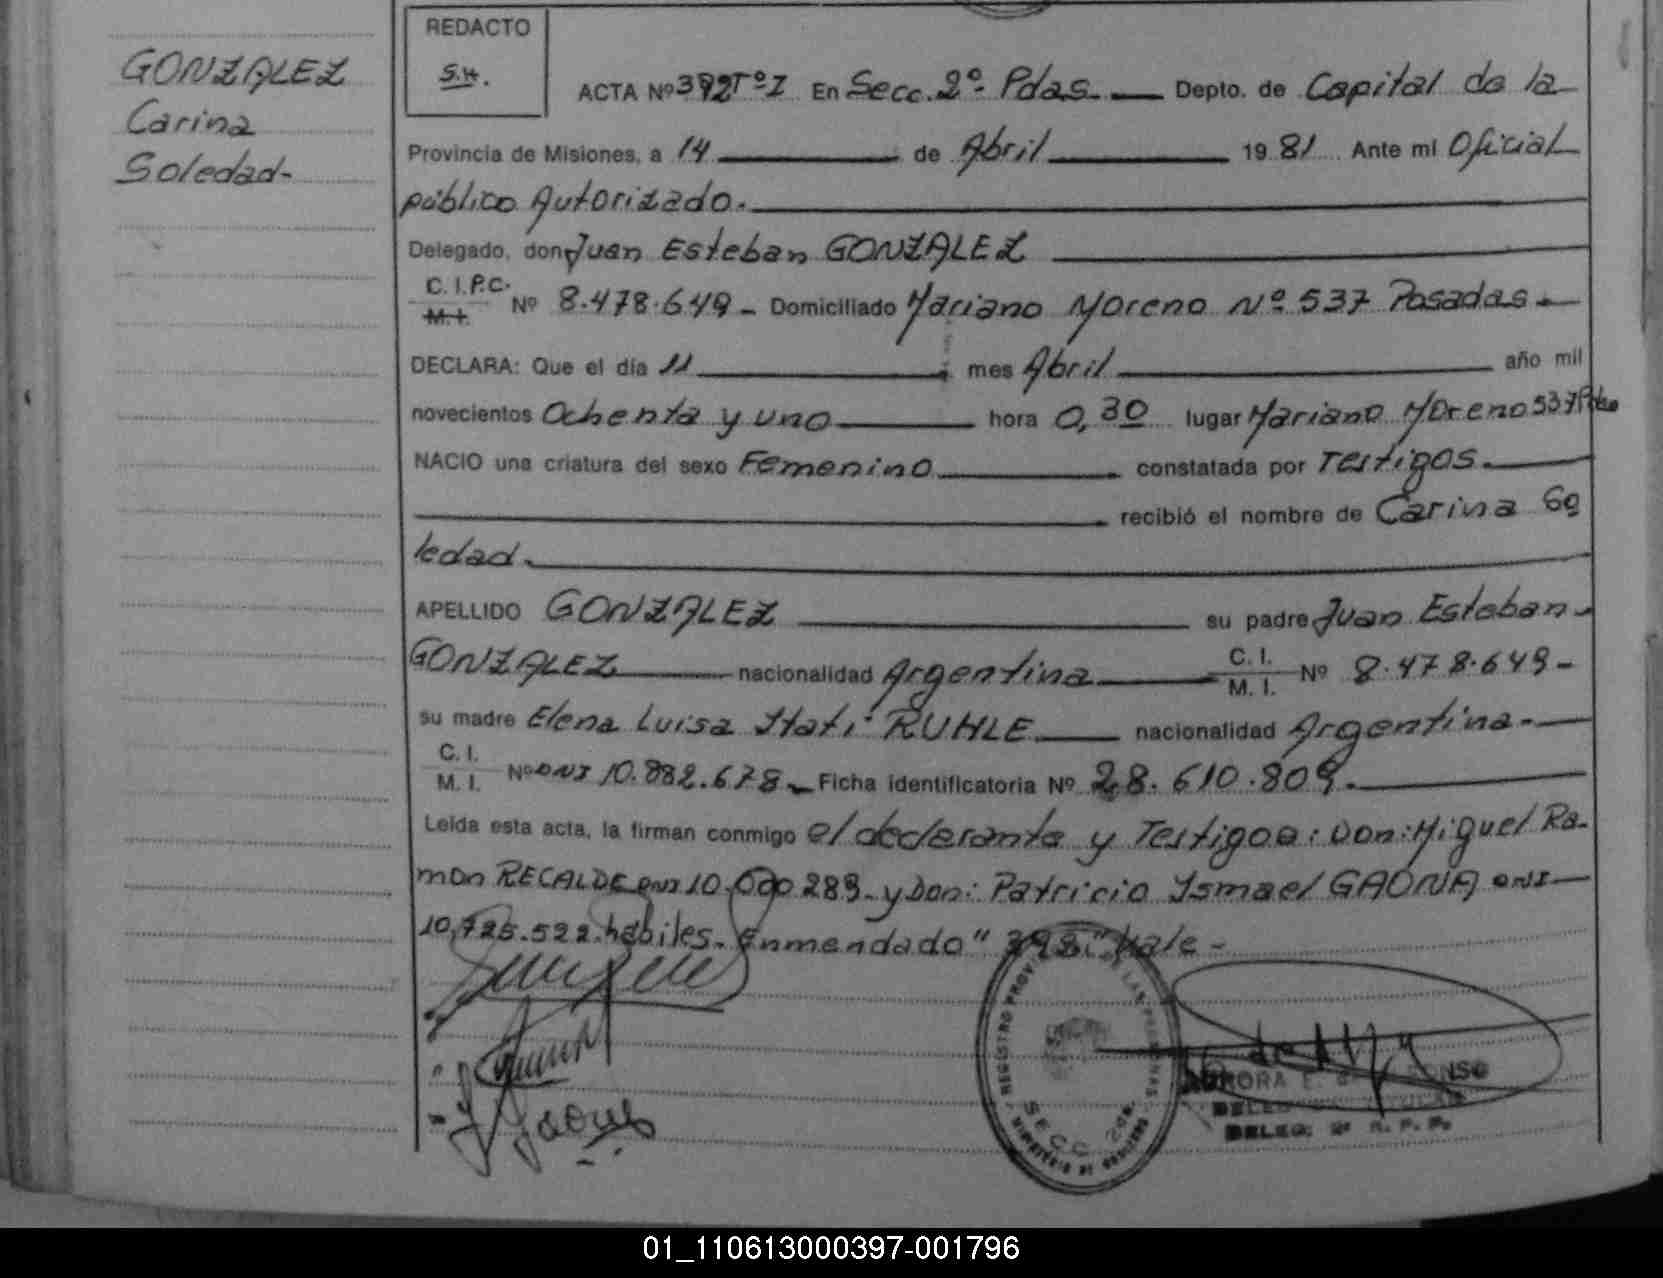 GONZALEZ
Carina
Soledad-
REDACTO
S.H.
ACTA Nº 392 Tº I En Secc. 2º Pdas. Depto. de Capital de la
Provincia de Misiones, a 14 de Abril 1981 Ante mi Oficial
público Autorizado.
Delegado, don Juan Esteban GONZALEZ
C. I. P.C.
M. I. Nº 8.478.649 - Domiciliado Mariano Moreno Nº 537 Posadas.-
DECLARA: Que el día 11 mes Abril año mil
novecientos Ochenta y uno hora 0,30 lugar Mariano Moreno 537 Pdas
NACIO una criatura del sexo Femenino constatada por Testigos.
recibió el nombre de Carina So
ledad.
APELLIDO GONZALEZ su padre Juan Esteban
GONZALEZ nacionalidad Argentina C. I. M. I. Nº 8.478.649-
su madre Elena Luisa Itati RUHLE nacionalidad Argentina.-
C. I.
M. I. Nº DNI 10.882.678 - Ficha identificatoria Nº 28.610.809.
Leída esta acta, la firman conmigo el declarante y Testigos: Don: Miguel Ra-
mon RECALDE DNI 10.000.289- y Don: Patricio Ismael GAONA DNI
10.725.522. hábiles. Enmendado " " Vale -
REGISTRO
SECC. 2da.
DELEG. 2ª R. P. P.
01_110613000397-001796